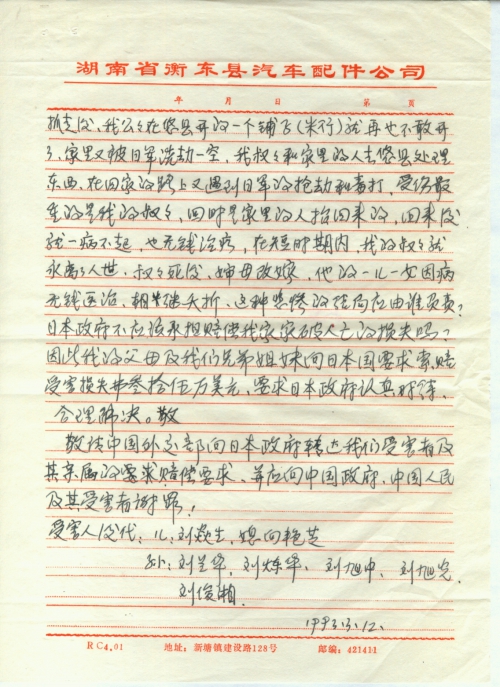 湖南省衡东县汽车配件公司
年 月 日 第 页
抓走后、我公公在攸县开的一个铺子(米行)就再也不敢开
了、家里又被日军洗劫一空，我叔叔和家里的人去攸县处理
东西，在回家的路上又遇到日军的抢劫和毒打，受伤最
重的是我的叔叔，回时是家里的人抬回来的，回来后
就一病不起，也无钱治疗，在短时期内，我的叔叔就
永离了人世、叔叔死后、婶母改嫁，他的一儿一女因病
无钱医治、相继夭折、这种悲惨的结局应由谁负责？
日本政府不应该承担赔偿我家家破人亡的损失吗？
因此我的父母及我们兄弟姐妹向日本国要求索赔
受害损失费叁拾伍万美元，要求日本政府认真对待、
合理解决。敬
敬请中国外交部向日本政府转达我们受害者及
其亲属的要求赔偿要求、并应向中国政府、中国人民
及其受害者谢罪！
受害人后代：儿：刘焱生，媳向艳芝
孙：刘兰华，刘炼华、刘旭中、刘旭亮
刘俊湘.
1993.3.12.
RC4.01 地址：新塘镇建设路128号 邮编：421411